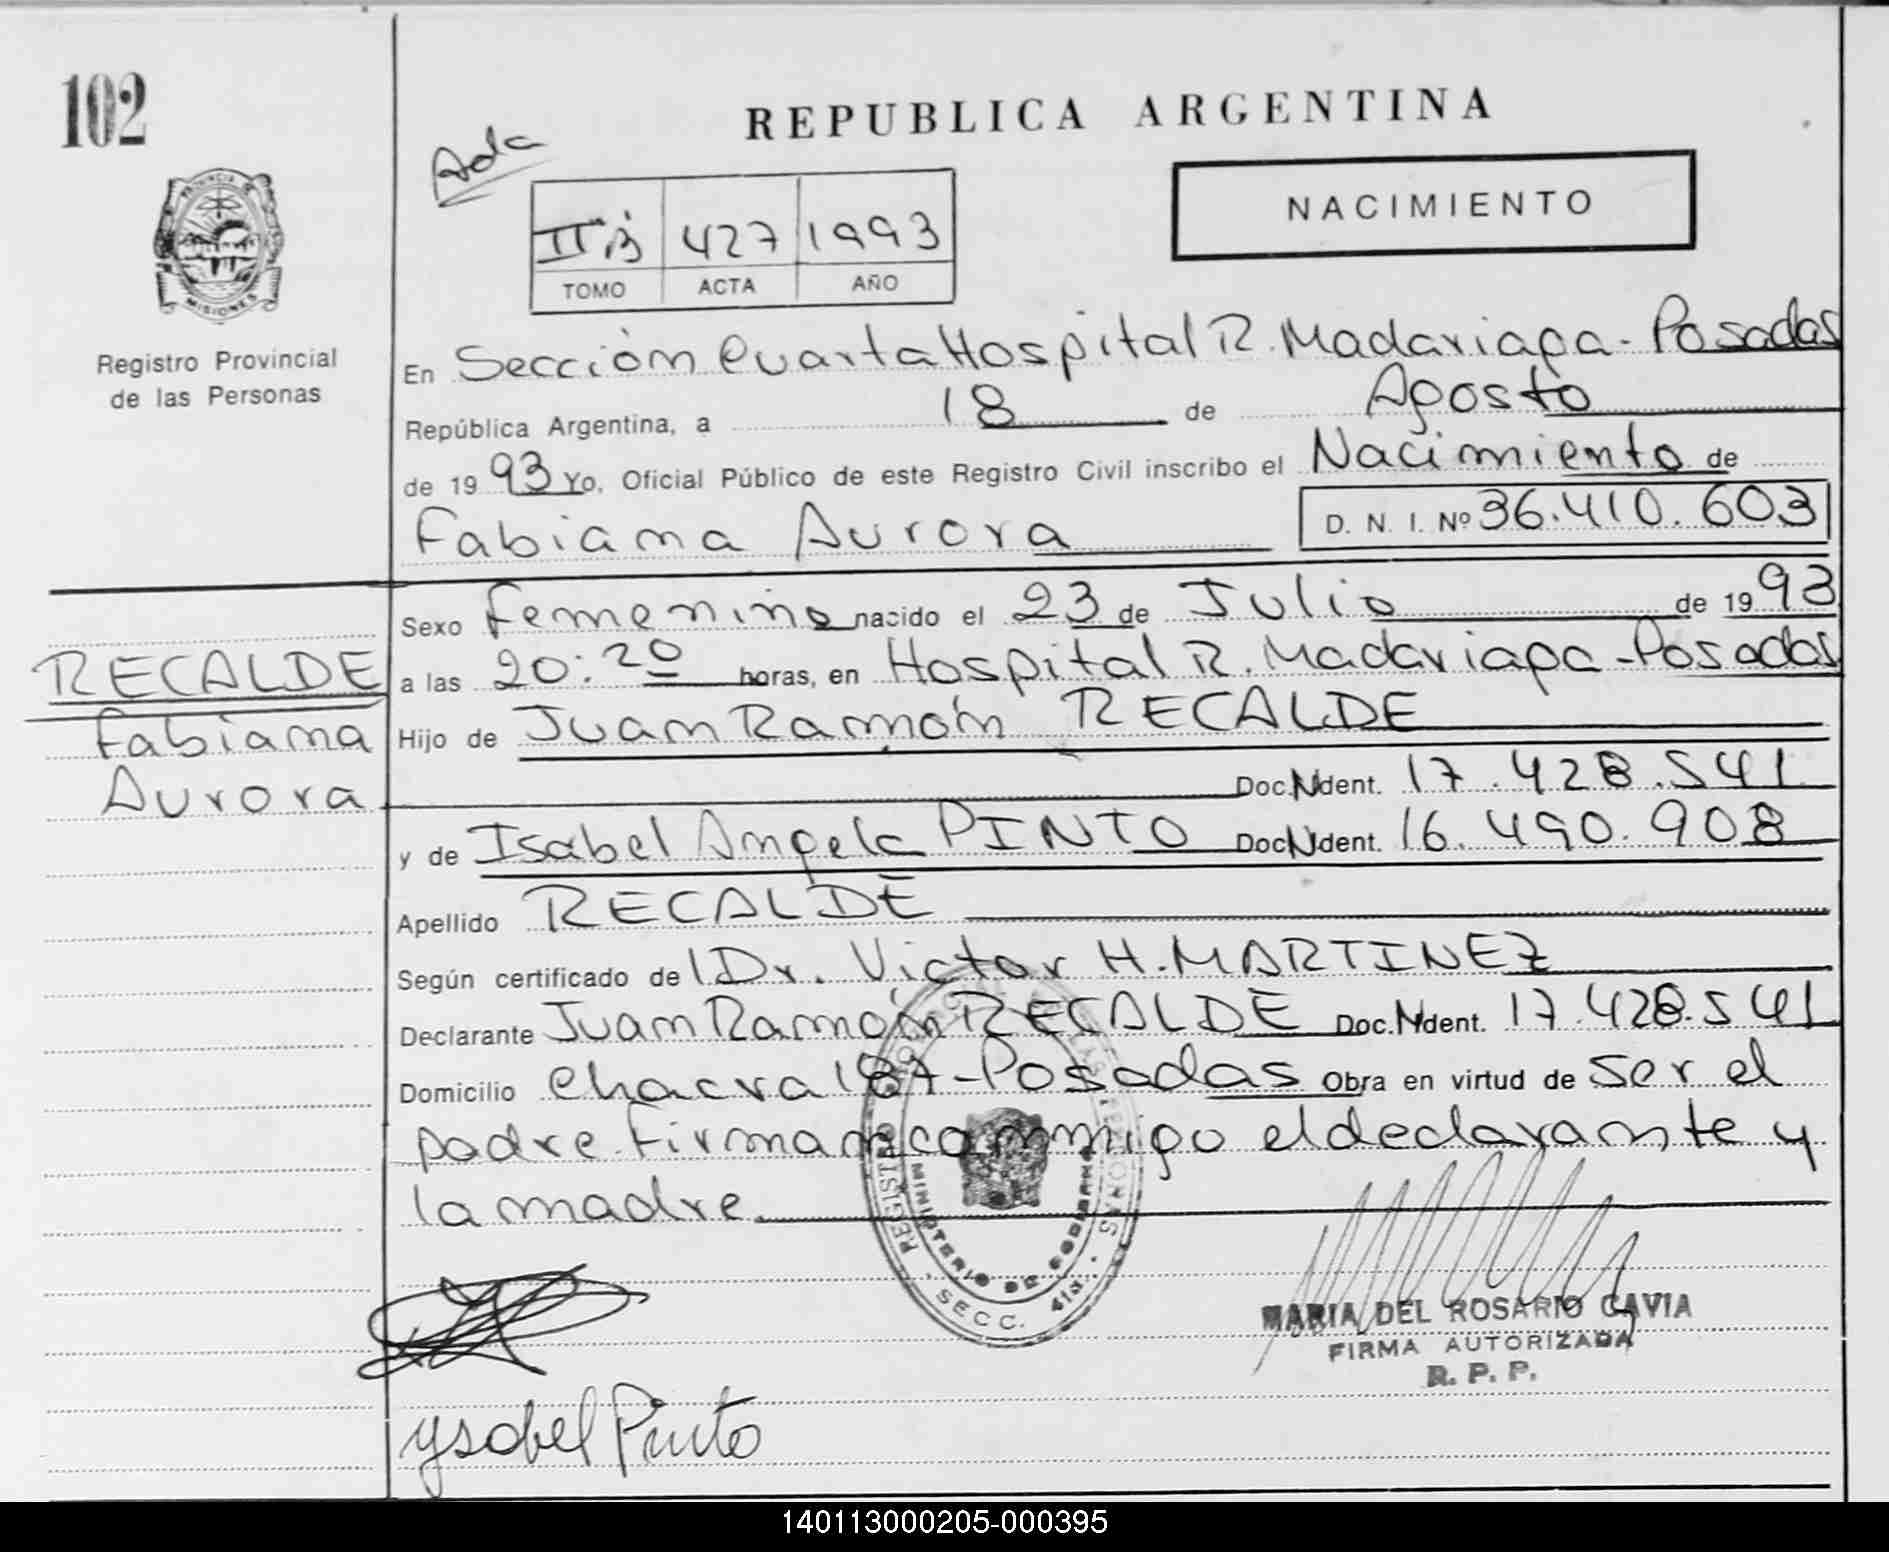 102
REPUBLICA ARGENTINA
Ada
PROVINCIA DE
MISIONES
II B 427 1993
TOMO ACTA AÑO
NACIMIENTO
Registro Provincial
de las Personas
En Sección Cuarta Hospital R. Madariaga - Posadas
República Argentina, a 18 de Agosto
de 1993 Yo, Oficial Público de este Registro Civil inscribo el Nacimiento de
Fabiana Aurora D. N. I. Nº 36.410.603
Sexo Femenino nacido el 23 de Julio de 1993
RECALDE
Fabiana
Aurora
a las 20:20 horas, en Hospital R. Madariaga - Posadas
Hijo de Juan Ramón RECALDE
Doc.N.Ident. 17.428.541
y de Isabel Angela PINTO Doc.N.Ident. 16.490.908
Apellido RECALDE
Según certificado del Dr. Victor H. MARTINEZ
Declarante Juan Ramón RECALDE Doc.N.Ident. 17.428.541
Domicilio Chacra 187 - Posadas Obra en virtud de ser el
padre. Firman conmigo el declarante y
la madre.
MINISTERIO DE GOBIERNO
SECC. 4ta.
MARIA DEL ROSARIO GAVIA
FIRMA AUTORIZADA
R. P. P.
Ysabel Pinto
140113000205-000395